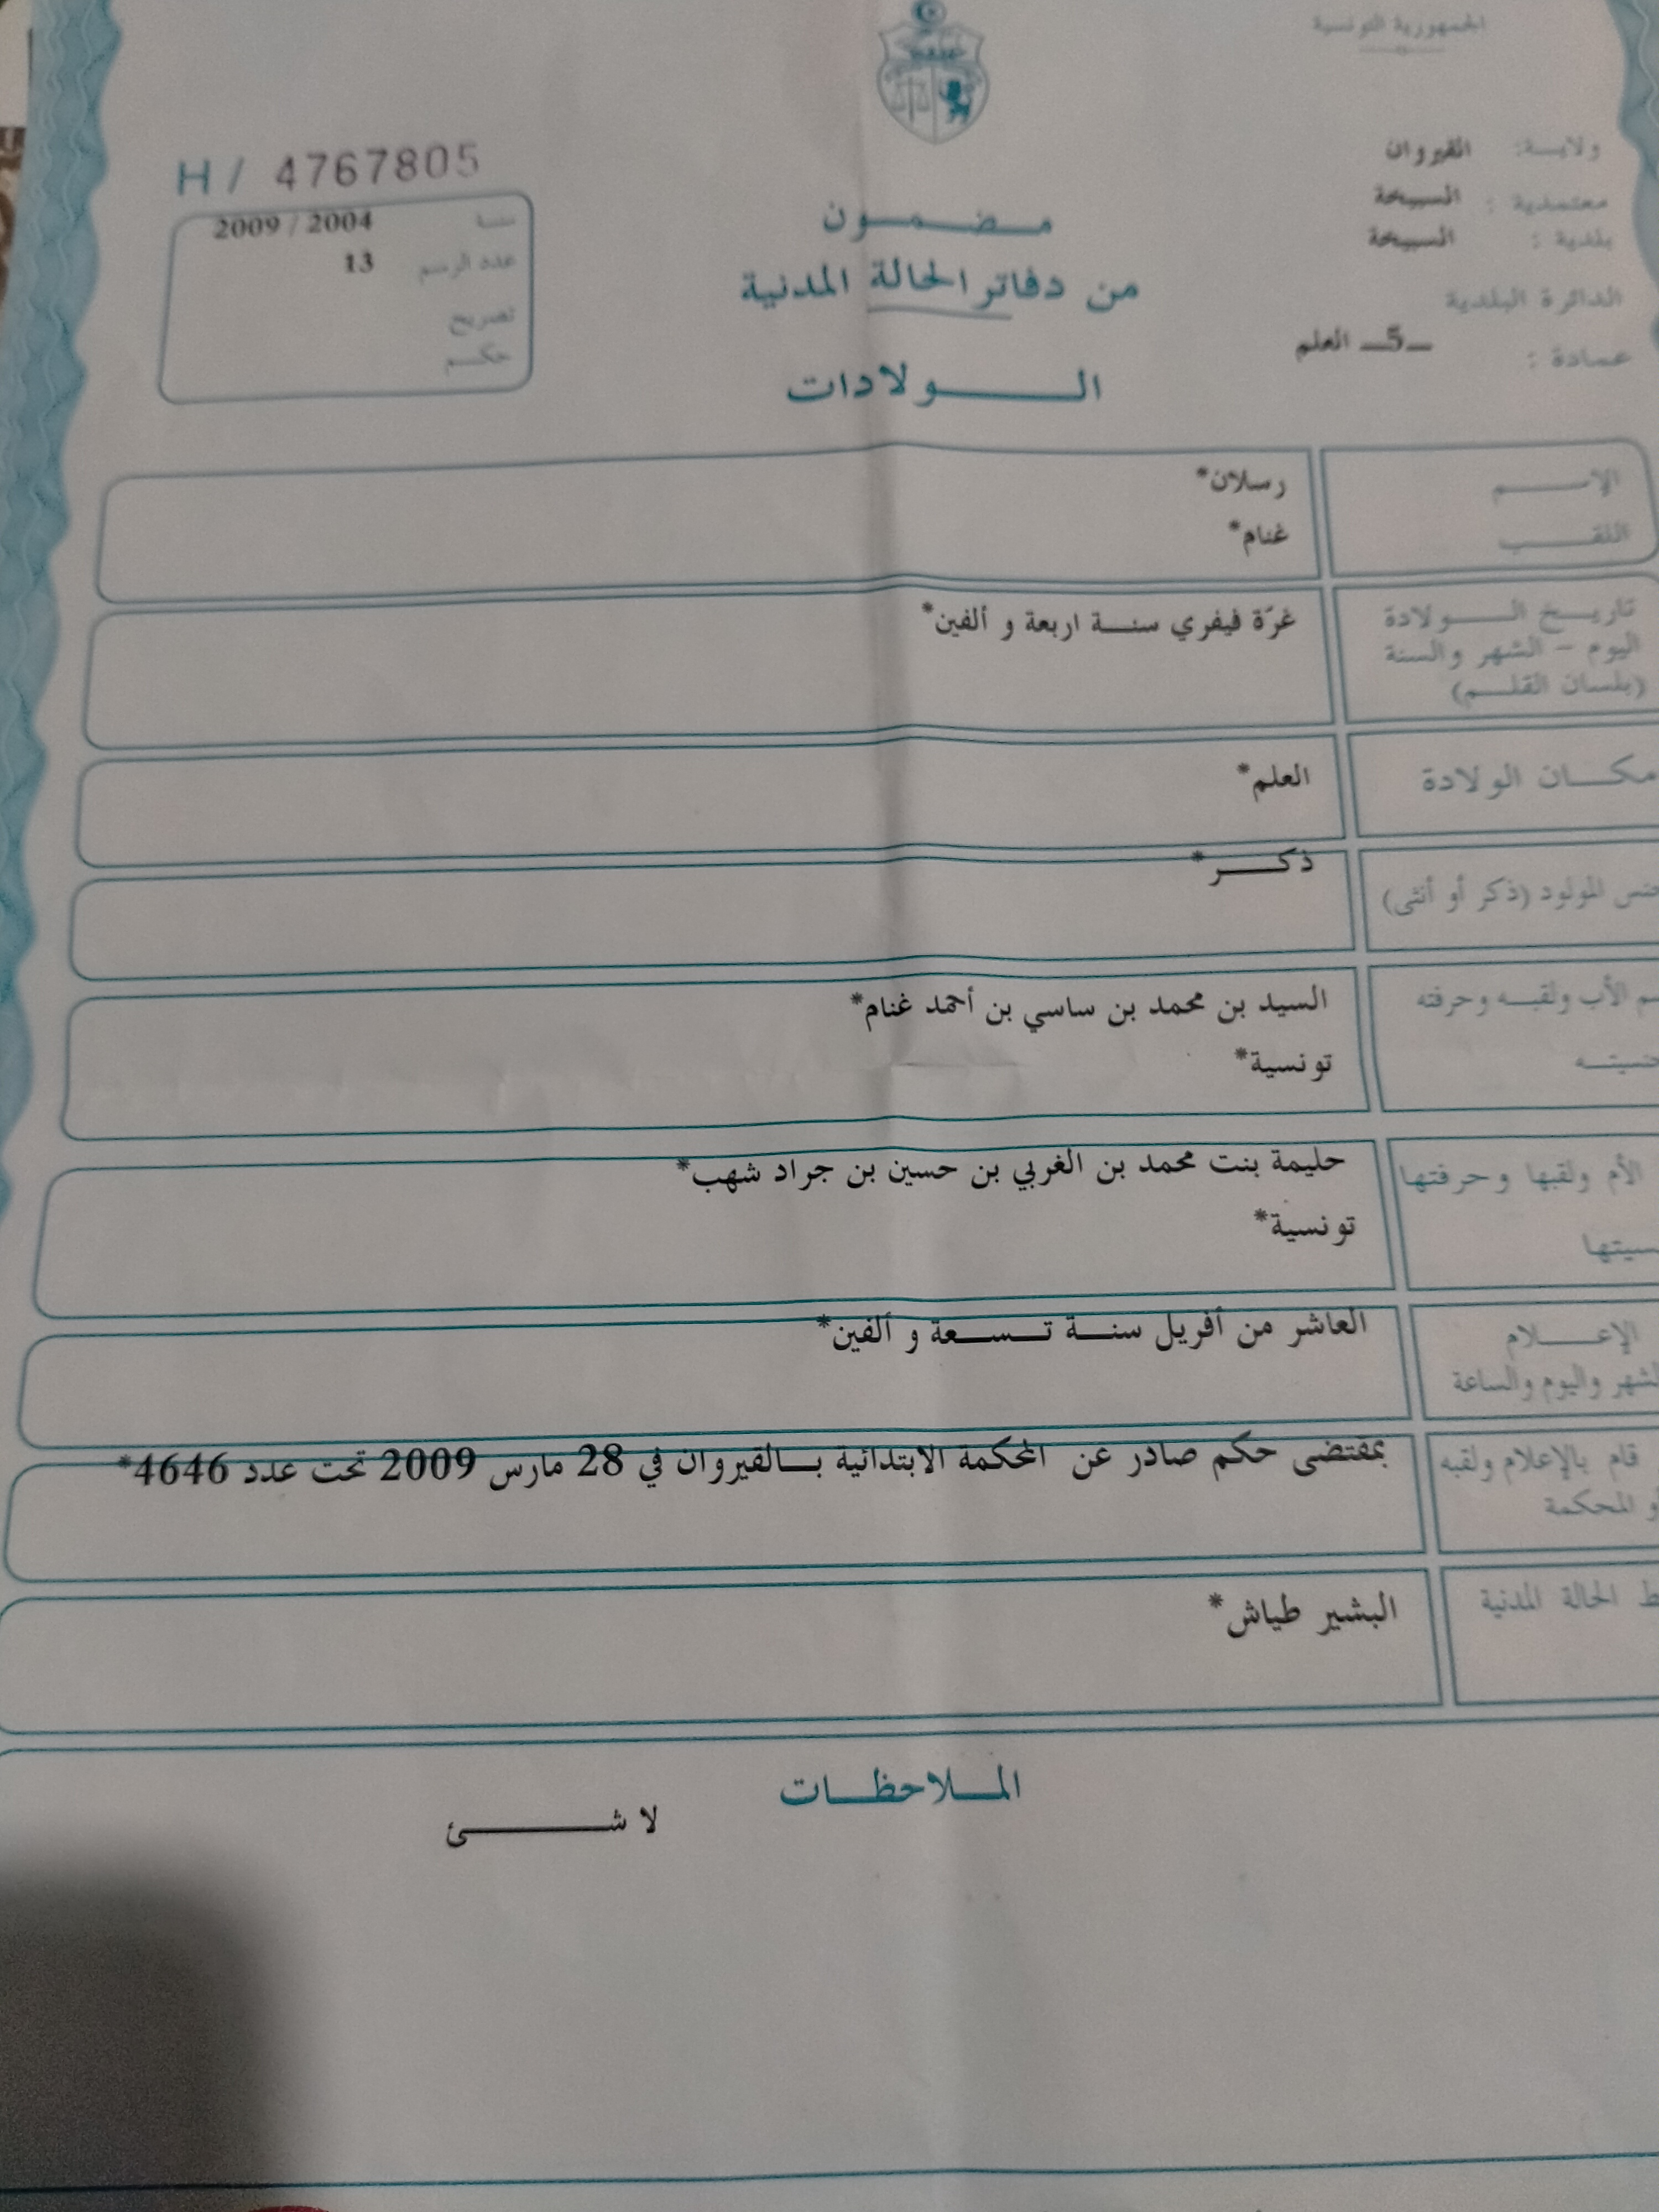 الجمهورية التونسية
ولايـة: القيروان
معتمدية : السبيخة
بلدية : السبيخة
الدائرة البلدية
عمادة : ـ5ـ العلم
H / 4767805
سنة 2009 / 2004
عدد الرسم 13
تصريح
حكم
مضمون
من دفاتر الحالة المدنية
الولادات
الإسم رسلان*
اللقب غنام*
تاريخ الولادة غرّة فيفري سنة اربعة و ألفين*
اليوم – الشهر والسنة
(بلسان القلم)
مكان الولادة العلم*
جنس المولود (ذكر أو أنثى) ذكر*
الأب ولقبه وحرفته السيد بن محمد بن ساسي بن أحمد غنام*
تونسية*
الأم ولقبها وحرفتها حليمة بنت محمد بن الغربي بن حسين بن جراد شهب*
تونسية*
الإعلام العاشر من أفريل سنة تسعة و ألفين*
واليوم والساعة
قام بالإعلام ولقبه بمقتضى حكم صادر عن المحكمة الابتدائية بالقيروان في 28 مارس 2009 تحت عدد 4646*
أو المحكمة
الحالة المدنية البشير طياش*
الملاحظات
لا شئ